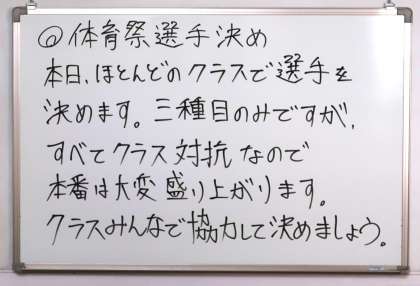 ◎体育祭選手決め
本日、ほとんどのクラスで選手を
決めます。三種目のみですが、
すべてクラス対抗なので
本番は大変盛り上がります。
クラスみんなで協力して決めましょう。